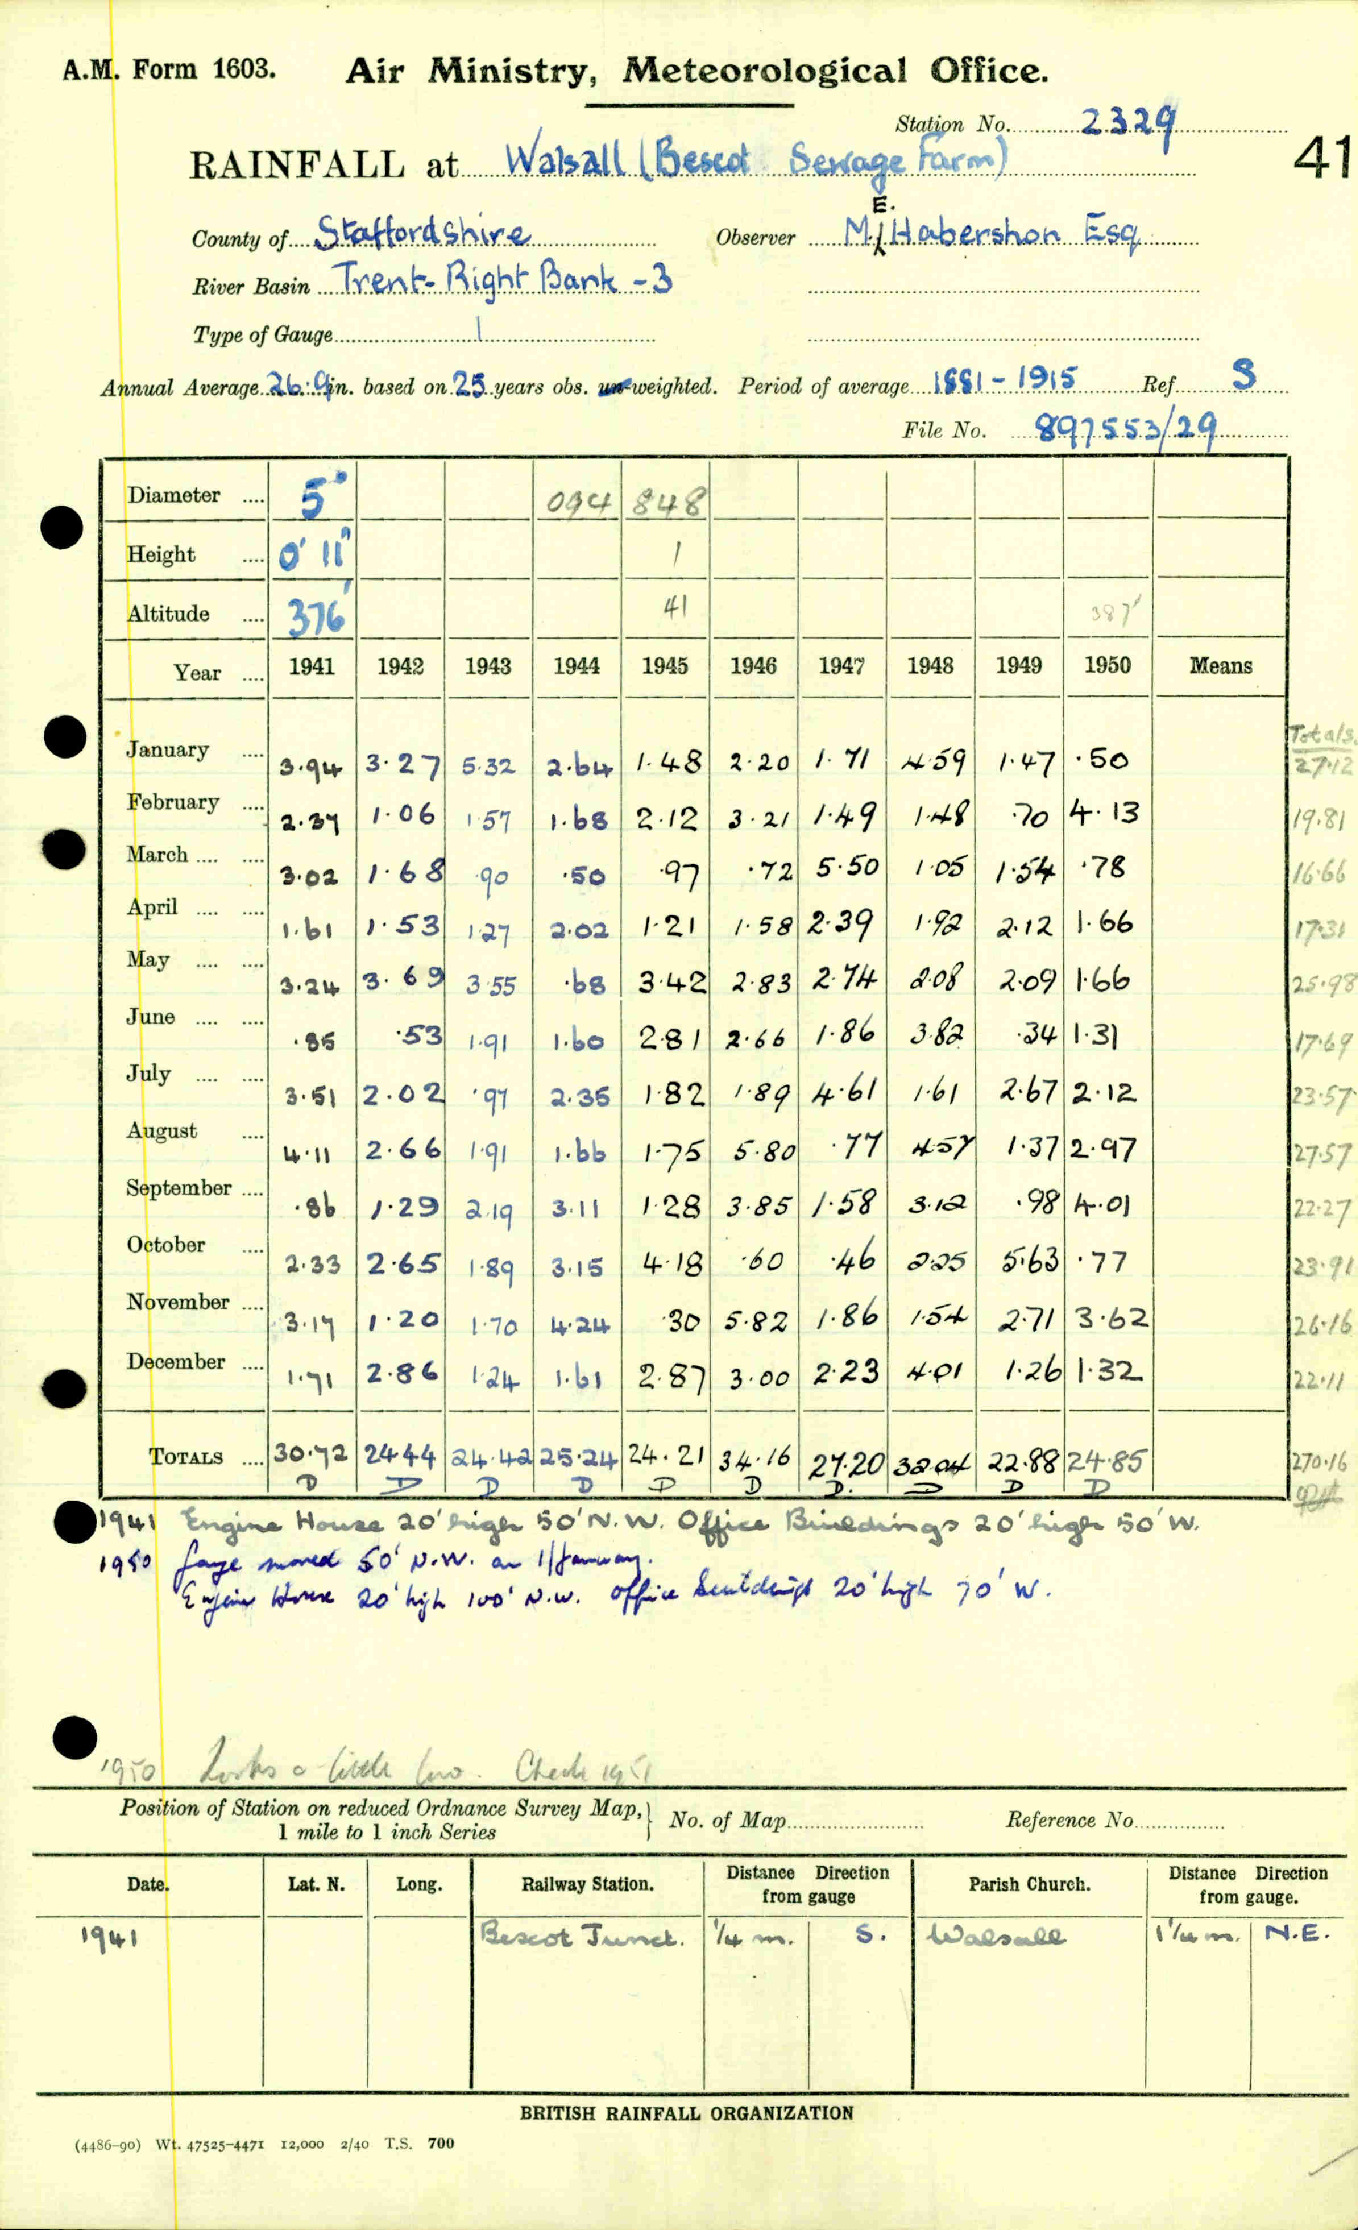 A.M. Form 1603. Air Ministry, Meteorological Office.
Station No. 2329
41
RAINFALL at Walsall (Bescot Sewage Farm)
E.
County of Staffordshire Observer M. Habershon Esq
River Basin Trent - Right Bank - 3
Type of Gauge 1
Annual Average 26.9 in. based on 25 years obs. un-weighted. Period of average 1881 - 1915 Ref. S
File No. 897553/29
Diameter .... 5" 094 848
Height .... 0' 11" 1
Altitude .... 376' 41 387'
Year .... 1941 1942 1943 1944 1945 1946 1947 1948 1949 1950 Means
Totals.
January .... 3.94 3.27 5.32 2.64 1.48 2.20 1.71 4.59 1.47 .50 27.12
February .... 2.37 1.06 1.57 1.68 2.12 3.21 1.49 1.48 .70 4.13 19.81
March .... .... 3.02 1.68 .90 .50 .97 .72 5.50 1.05 1.54 .78 16.66
April .... .... 1.61 1.53 1.27 2.02 1.21 1.58 2.39 1.92 2.12 1.66 17.31
May .... .... 3.24 3.69 3.55 .68 3.42 2.83 2.74 2.08 2.09 1.66 25.98
June .... .... .85 .53 1.91 1.60 2.81 2.66 1.86 3.82 .34 1.31 17.69
July .... .... 3.51 2.02 .97 2.35 1.82 1.89 4.61 1.61 2.67 2.12 23.57
August .... 4.11 2.66 1.91 1.66 1.75 5.80 .77 4.57 1.37 2.97 27.57
September .... .86 1.29 2.19 3.11 1.28 3.85 1.58 3.12 .98 4.01 22.27
October .... 2.33 2.65 1.89 3.15 4.18 .60 .46 2.25 5.63 .77 23.91
November .... 3.17 1.20 1.70 4.24 .30 5.82 1.86 1.54 2.71 3.62 26.16
December .... 1.71 2.86 1.24 1.61 2.87 3.00 2.23 4.01 1.26 1.32 22.11
TOTALS .... 30.72 24.44 24.42 25.24 24.21 34.16 27.20 32.04 22.88 24.85 270.16
D D D D D D D. D D D
1941 Engine House 20' high 50' N.W. Office Buildings 20' high 50' W.
1950 Gauge moved 50' N.W. on 1/January.
Engine House 20' high 100' N.W. Office buildings 20' high 70' W.
1950 Looks a little low. Check 1951
Position of Station on reduced Ordnance Survey Map, } No. of Map Reference No.
1 mile to 1 inch Series
Date. Lat. N. Long. Railway Station. Distance Direction from gauge Parish Church. Distance Direction from gauge.
1941 Bescot Junct. 1/4 m. S. Walsall 1 1/4 m. N.E.
BRITISH RAINFALL ORGANIZATION
(4486-90) Wt. 47525-4471 12,000 2/40 T.S. 700